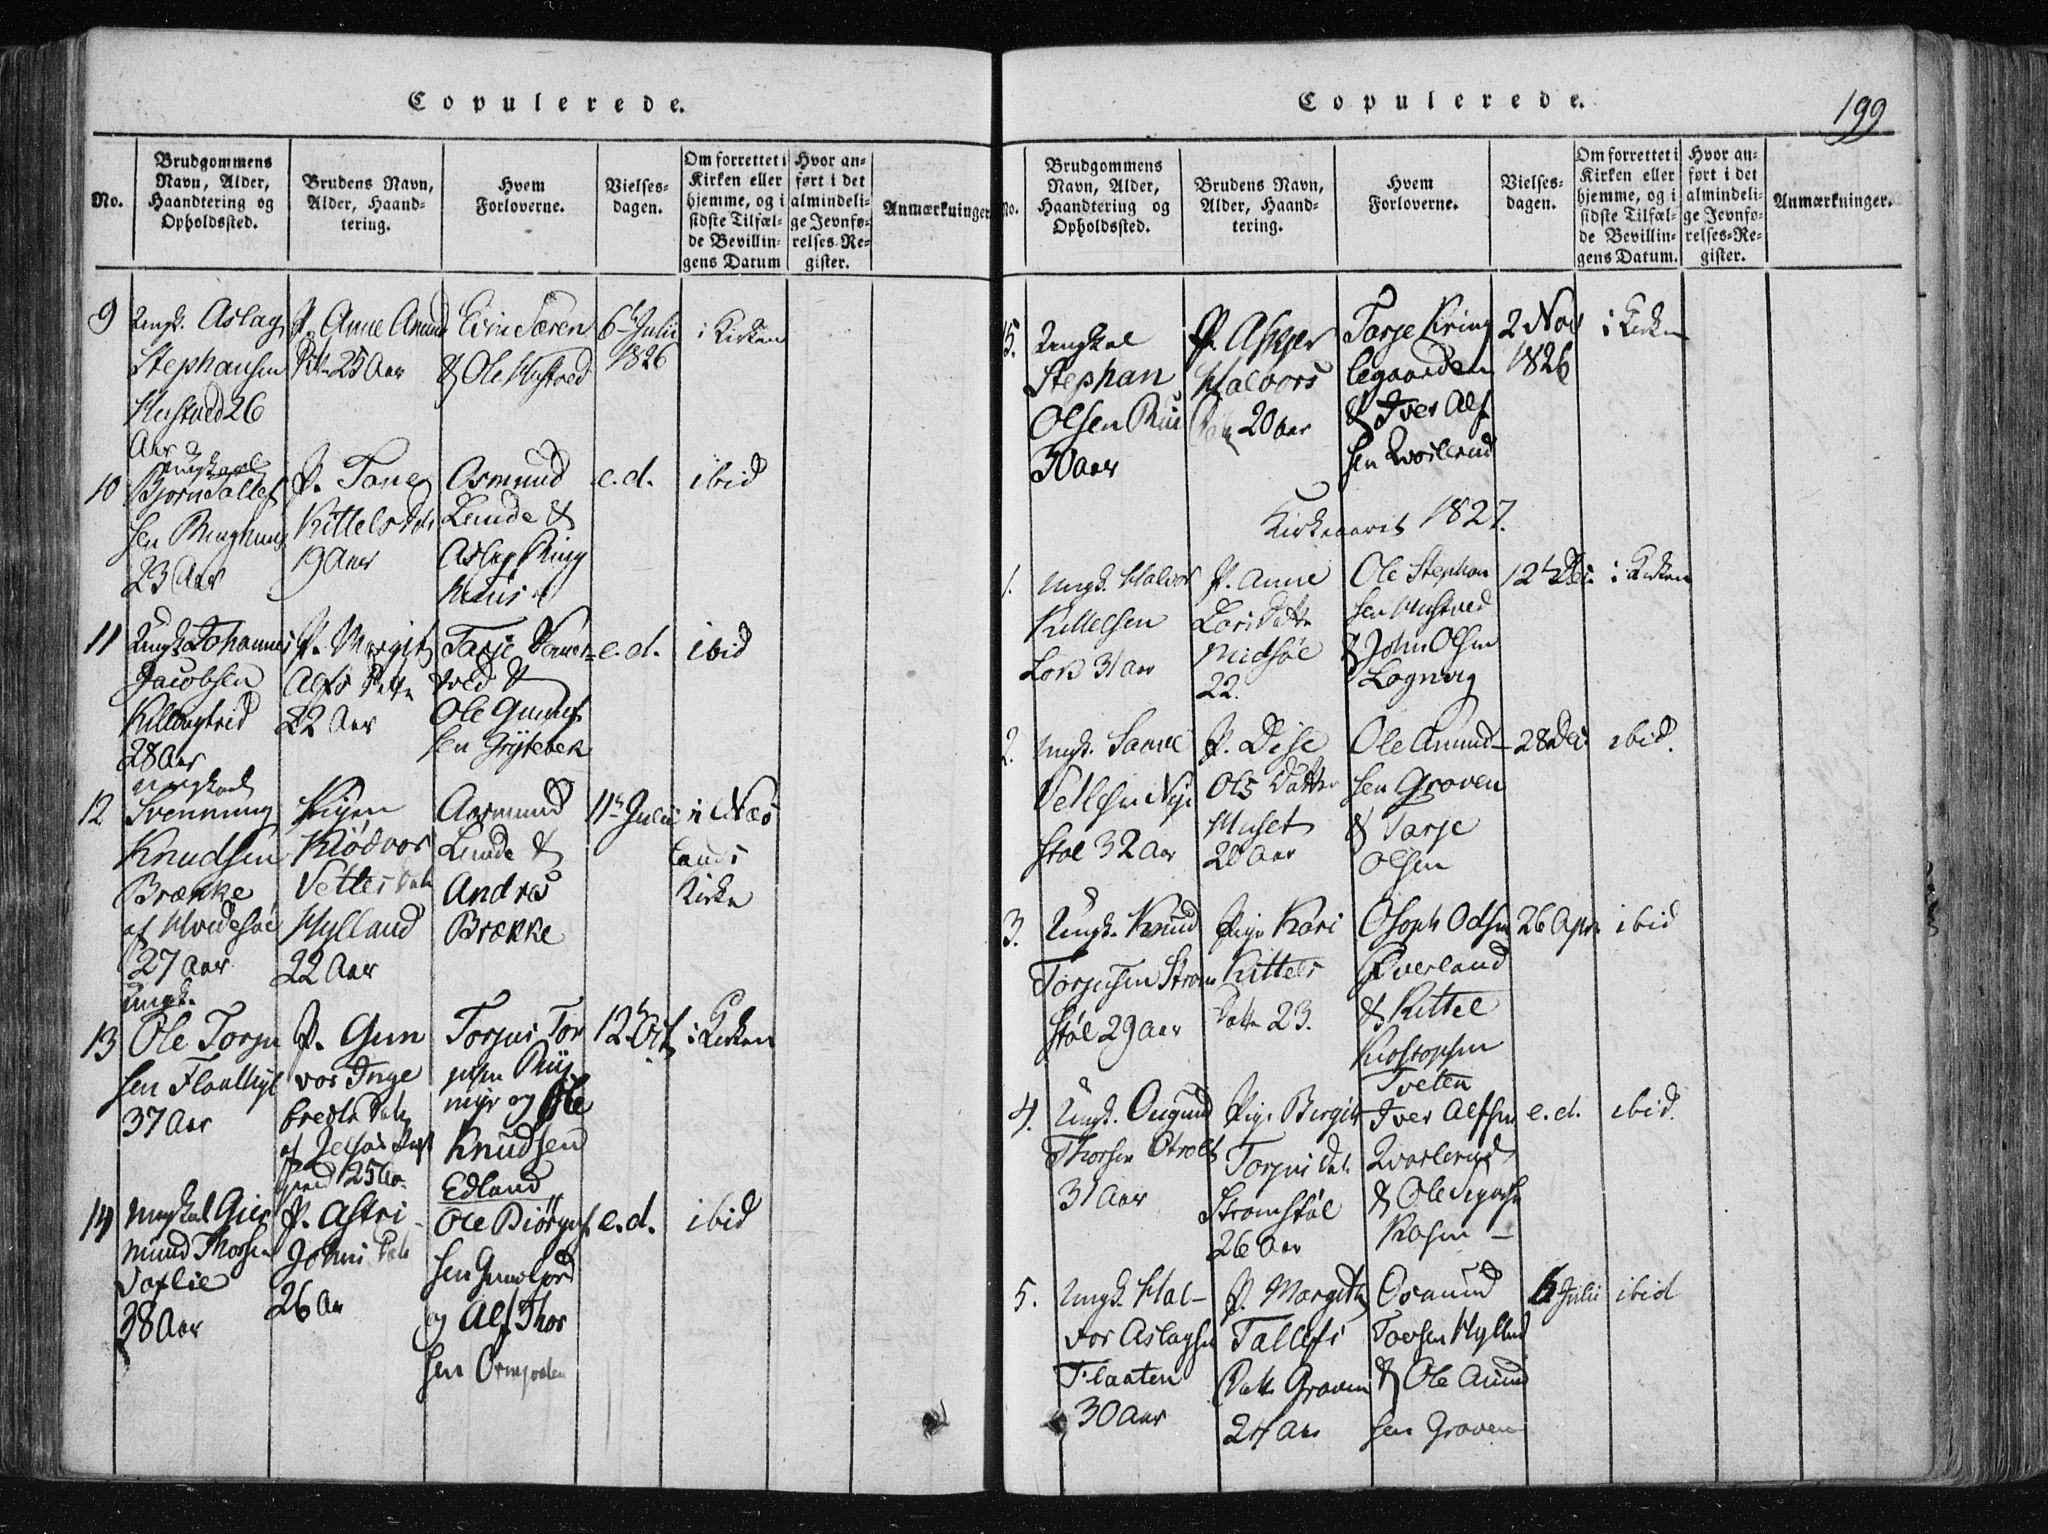 Copulerede.
No.
Brudgommens
Navn, Alder,
Haandtering og
Opholdssted.
Brudens Navn,
Alder, Haand-
tering.
Hvem
Forloverne.
Vielses-
dagen.
Om forrettet i
Kirken eller
hjemme, og i
sidste Tilfæl-
de Bevillin-
gens Datum
Hvor an-
ført i det
almindeli-
ge Jevnfø-
relses-Re-
gister.
Anmærkninger
9
Ungk. Aslag
Stephansen
Hustved 26
Aar
P. Anne Amund
25 Aar
Søren
& Ole Hustved
6 Juli
1826
i Kirken
10
Ungkarl
Bjørn Tallef
sen
23 Aar
P. Tone
Kittels Datt
19 Aar
Osmund
Lunde &
Aslag Ring
e.d.
ibid
11
Ungk. Johannes
Jacobsen
28 Aar
P. Margit
Alfs Datte
22 Aar
Tarje
tved &
Ole Gunnuf
sen Grytebek
e.d.
ibid
12
Ungkarl
Svenning
Knudsen
Brække
af Hvidesøe
27 Aar
Pigen
Kiødvor
Vetles Datt
Hylland
22 Aar
Aasmund
Lunde &
Andres
Brække
11 Julii
i Næs
lands
Kirke
13
Ungk.
Ole Torju
sen Flaatbyt
37 Aar
P. Gun
vor Inge
bretts Datt
25 Aa
Torjus Tor
jusen
myr og Ole
Knudsen
Edland
12 Oct
i Kirken
14
Ungkarl Gier
mund Thorsen
Vaxlie
28 Aar
P. Astri
Johns Datt
26 Aa
Ole Biørgulf
sen
og Alf Thor
sen
e.d.
ibid
Copulerede.
199
No.
Brudgommens
Navn, Alder,
Haandtering og
Opholdssted.
Brudens Navn,
Alder, Haand-
tering.
Hvem
Forloverne.
Vielses-
dagen.
Om forrettet i
Kirken eller
hjemme, og i
sidste Tilfæl-
de Bevillin-
gens Datum.
Hvor an-
ført i det
almindeli-
ge Jevnfø-
relses-Re-
gister.
Anmærkninger.
15.
Ungkal
Stephan
Olsen Rui
30 aar
P. Asper
Halvors
Datt 20 aar
Tarje Kring
legaarden
& Iver Alf
sen
2 Nov
1826
i Kirken
Kirkeaaret 1827.
1.
Ungk. Halvor
Kittelsen
Loss 31 aar
P. Anne
Lars Datte
Midsøe
22.
Ole Stephan
sen Hustved
& John Olsen
Lognvig
12 Dec.
i Kirken
2.
Ungk. Samel
Vetlesen Nys
støl 32 Aar
P. Dise
Ols Datter
Huset
20 Aar
Ole Amund-
sen Groven
& Tarje
Olsen
28 Dec
ibid.
3.
Ungk. Knud
Torjusen Strom
støl 29 aar
Pige Kari
Kittels
Datte 23.
Osoph Olsen
Øverland
& Kittel
Kiostophsen
Tveten
26 Apr.
ibid
4.
Ungk. Ougund
Thorsen
31 Aar
Pige Birgit
Torjus Datt
Stromstøl
26 Aar
Iver Alfsen
& Ole
e.d.
ibid.
5.
Ungk. Hal-
vor Aslagsen
Flaaten
30 Aar
P. Margith
Tallefs
Datte Groven
24 Aa
Osmund
Torsen Hylland
& Ole Amund
sen Groven
6 Julii
ibid